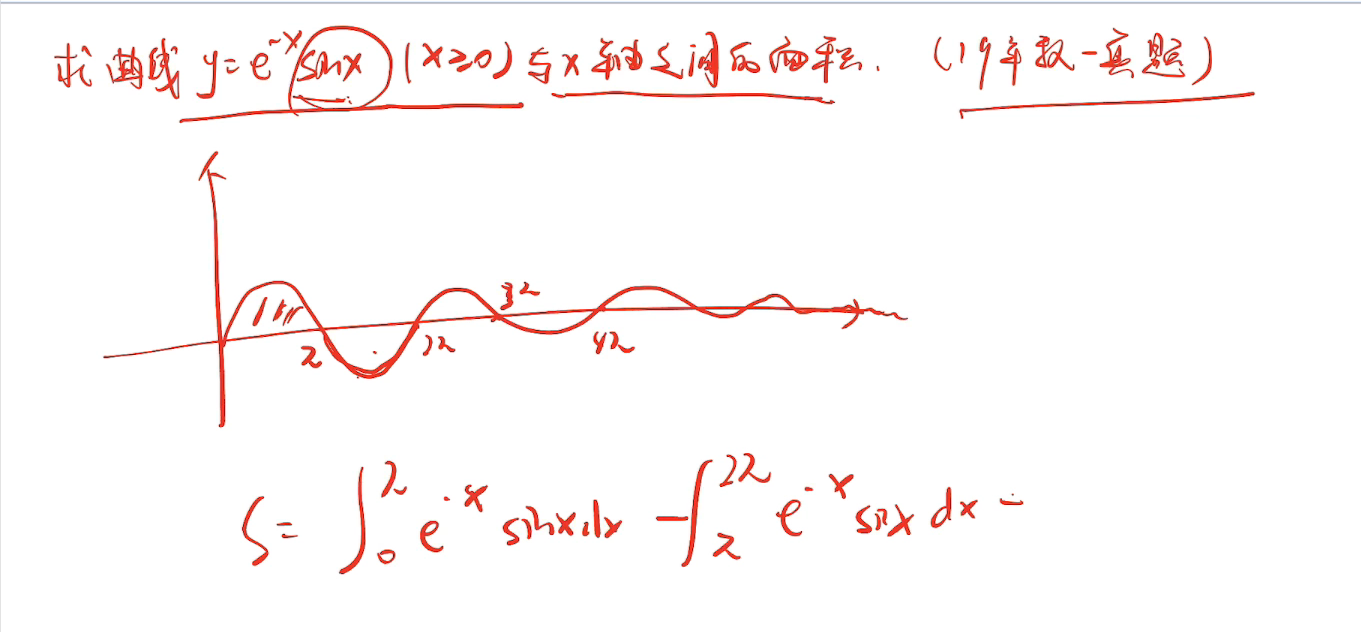 求曲线 y=e^{-x} sinx (x≥0) 与 x 轴之间的面积. (19年数一真题)
π
2π
3π
4π
S= ∫_0^π e^{-x} sinx dx - ∫_π^{2π} e^{-x} sinx dx -